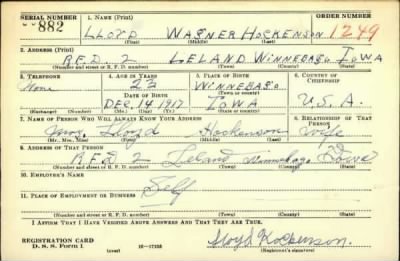 SERIAL NUMBER 1. NAME (Print) ORDER NUMBER
882 LLOYD WAGNER HOCKENSON 1249
(First) (Middle) (Last)
2. ADDRESS (Print)
R.F.D 2 LELAND WINNEBAGO IOWA
(Number and street or R. F. D. number) (Town) (County) (State)
3. TELEPHONE 4. AGE IN YEARS 5. PLACE OF BIRTH 6. COUNTRY OF CITIZENSHIP
None 23 WINNEBAGO
DATE OF BIRTH (Town or county)
DEC. 14 1917 IOWA U.S.A.
(Exchange) (Number) (Mo.) (Day) (Yr.) (State or country)
7. NAME OF PERSON WHO WILL ALWAYS KNOW YOUR ADDRESS 8. RELATIONSHIP OF THAT PERSON
Mrs. Lloyd Hockenson Wife
(Mr., Mrs., Miss) (First) (Middle) (Last)
9. ADDRESS OF THAT PERSON
R.F.D 2 Leland Winnebago Iowa
(Number and street or R. F. D. number) (Town) (County) (State)
10. EMPLOYER'S NAME
Self
11. PLACE OF EMPLOYMENT OR BUSINESS
(Number and street or R. F. D. number) (Town) (County) (State)
I AFFIRM THAT I HAVE VERIFIED ABOVE ANSWERS AND THAT THEY ARE TRUE.
REGISTRATION CARD
D. S. S. Form 1 (over) 16—17105 Lloyd Hockenson.
(Registrant's signature)